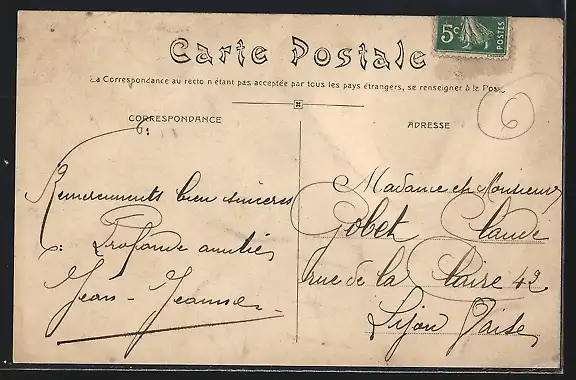 Carte Postale
La Correspondance au recto n'étant pas acceptée par tous les pays étrangers, se renseigner à la Poste
CORRESPONDANCE
ADRESSE
5c POSTES
6
Remerciements bien sincères
Profonde amitiés
Jean - Jeanne
Madame et Monsieur
Gobet Claude
rue de la Claire 42
Lyon Vaise